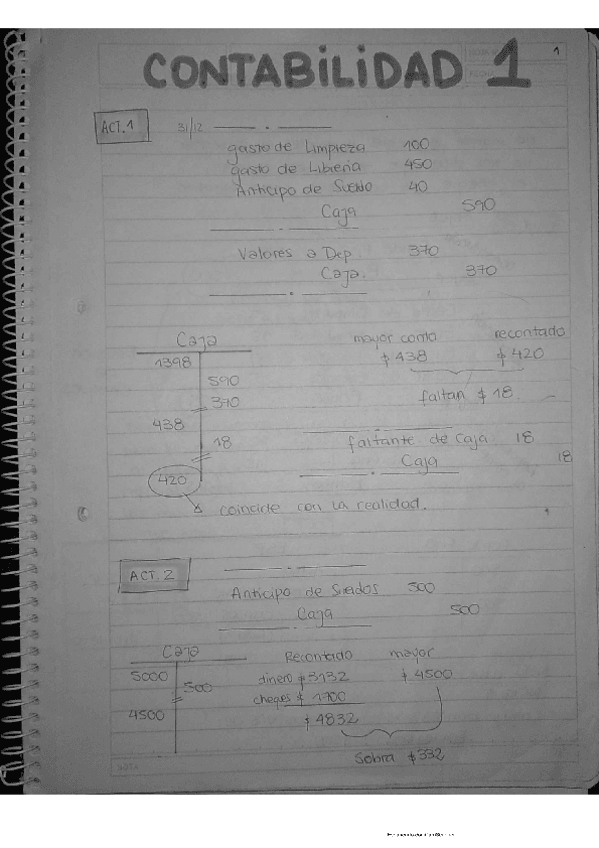 CONTABILIDAD 1
1
ACT.1 31/12
gasto de Limpieza 100
gasto de Librería 450
Anticipo de Sueldo 40
Caja 590
Valores a Dep 370
Caja 370
Caja
mayor conta recontado
1398 $ 438 $ 420
590
370 faltan $ 18
438
18 faltante de caja 18
Caja 18
420
coincide con la realidad.
ACT. 2
Anticipo de Sueldos 500
Caja 500
Caja Recontado mayor
5000 dinero $ 3132 $ 4500
500
cheques $ 1700
4500 $ 4832
Sobra $ 332